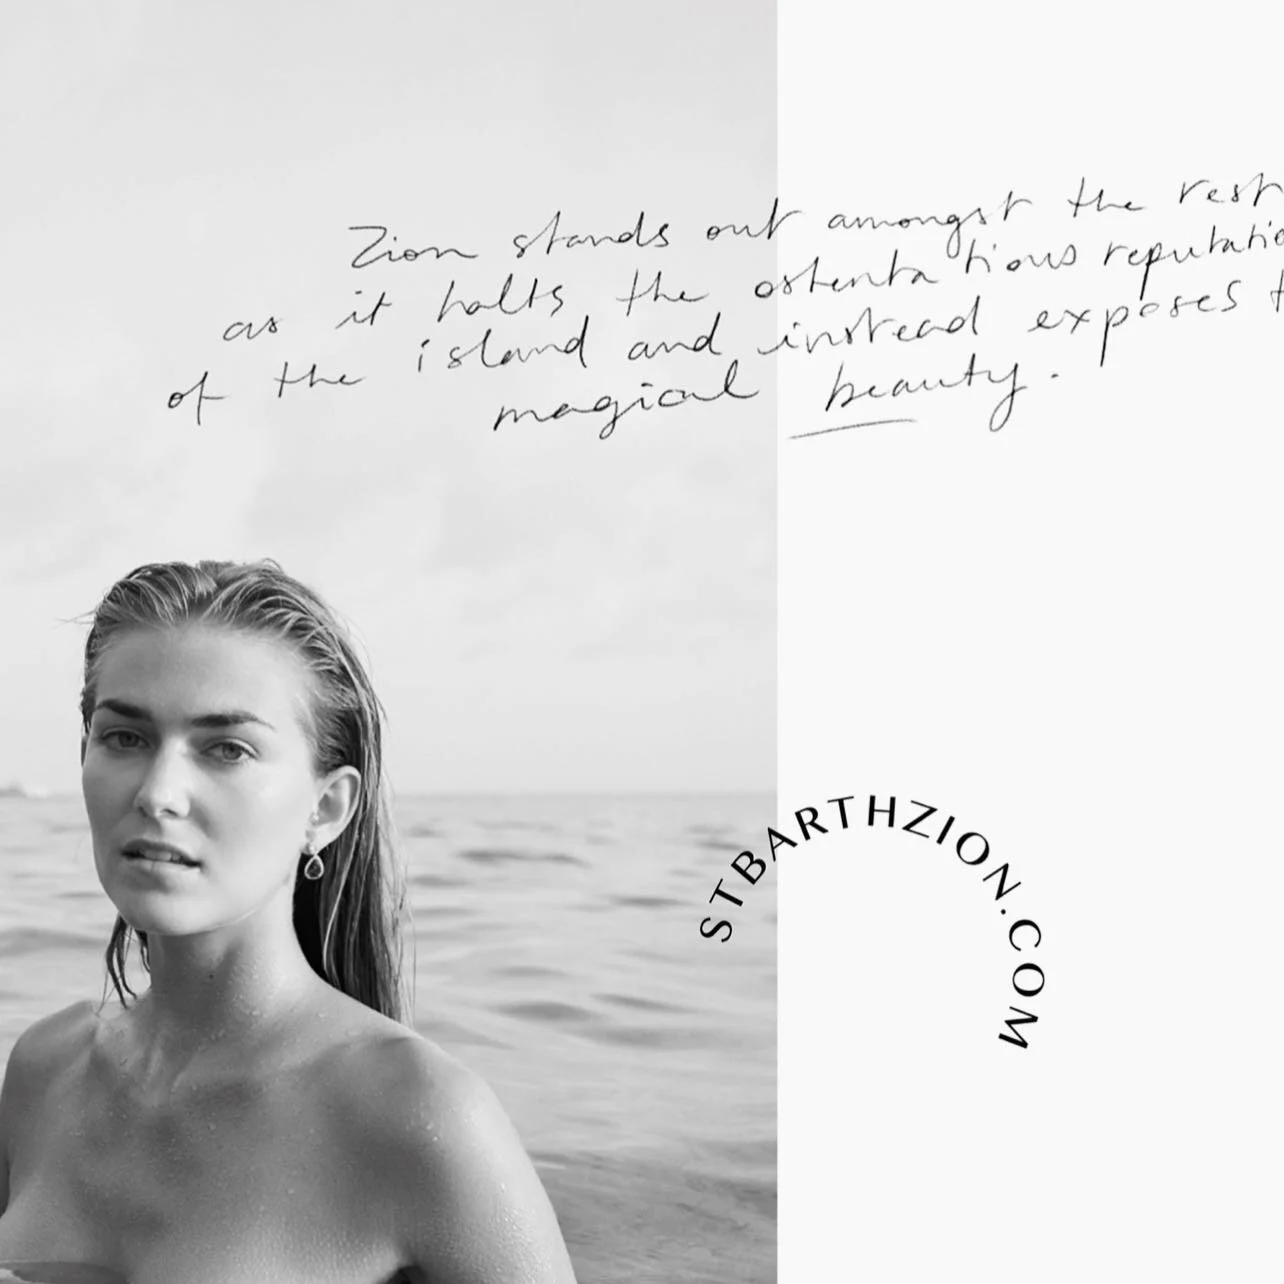 Zion stands out amongst the rest
as it halts the ostentatious reputatio
of the island and instead exposes t
magical beauty.
STBARTHZION.COM